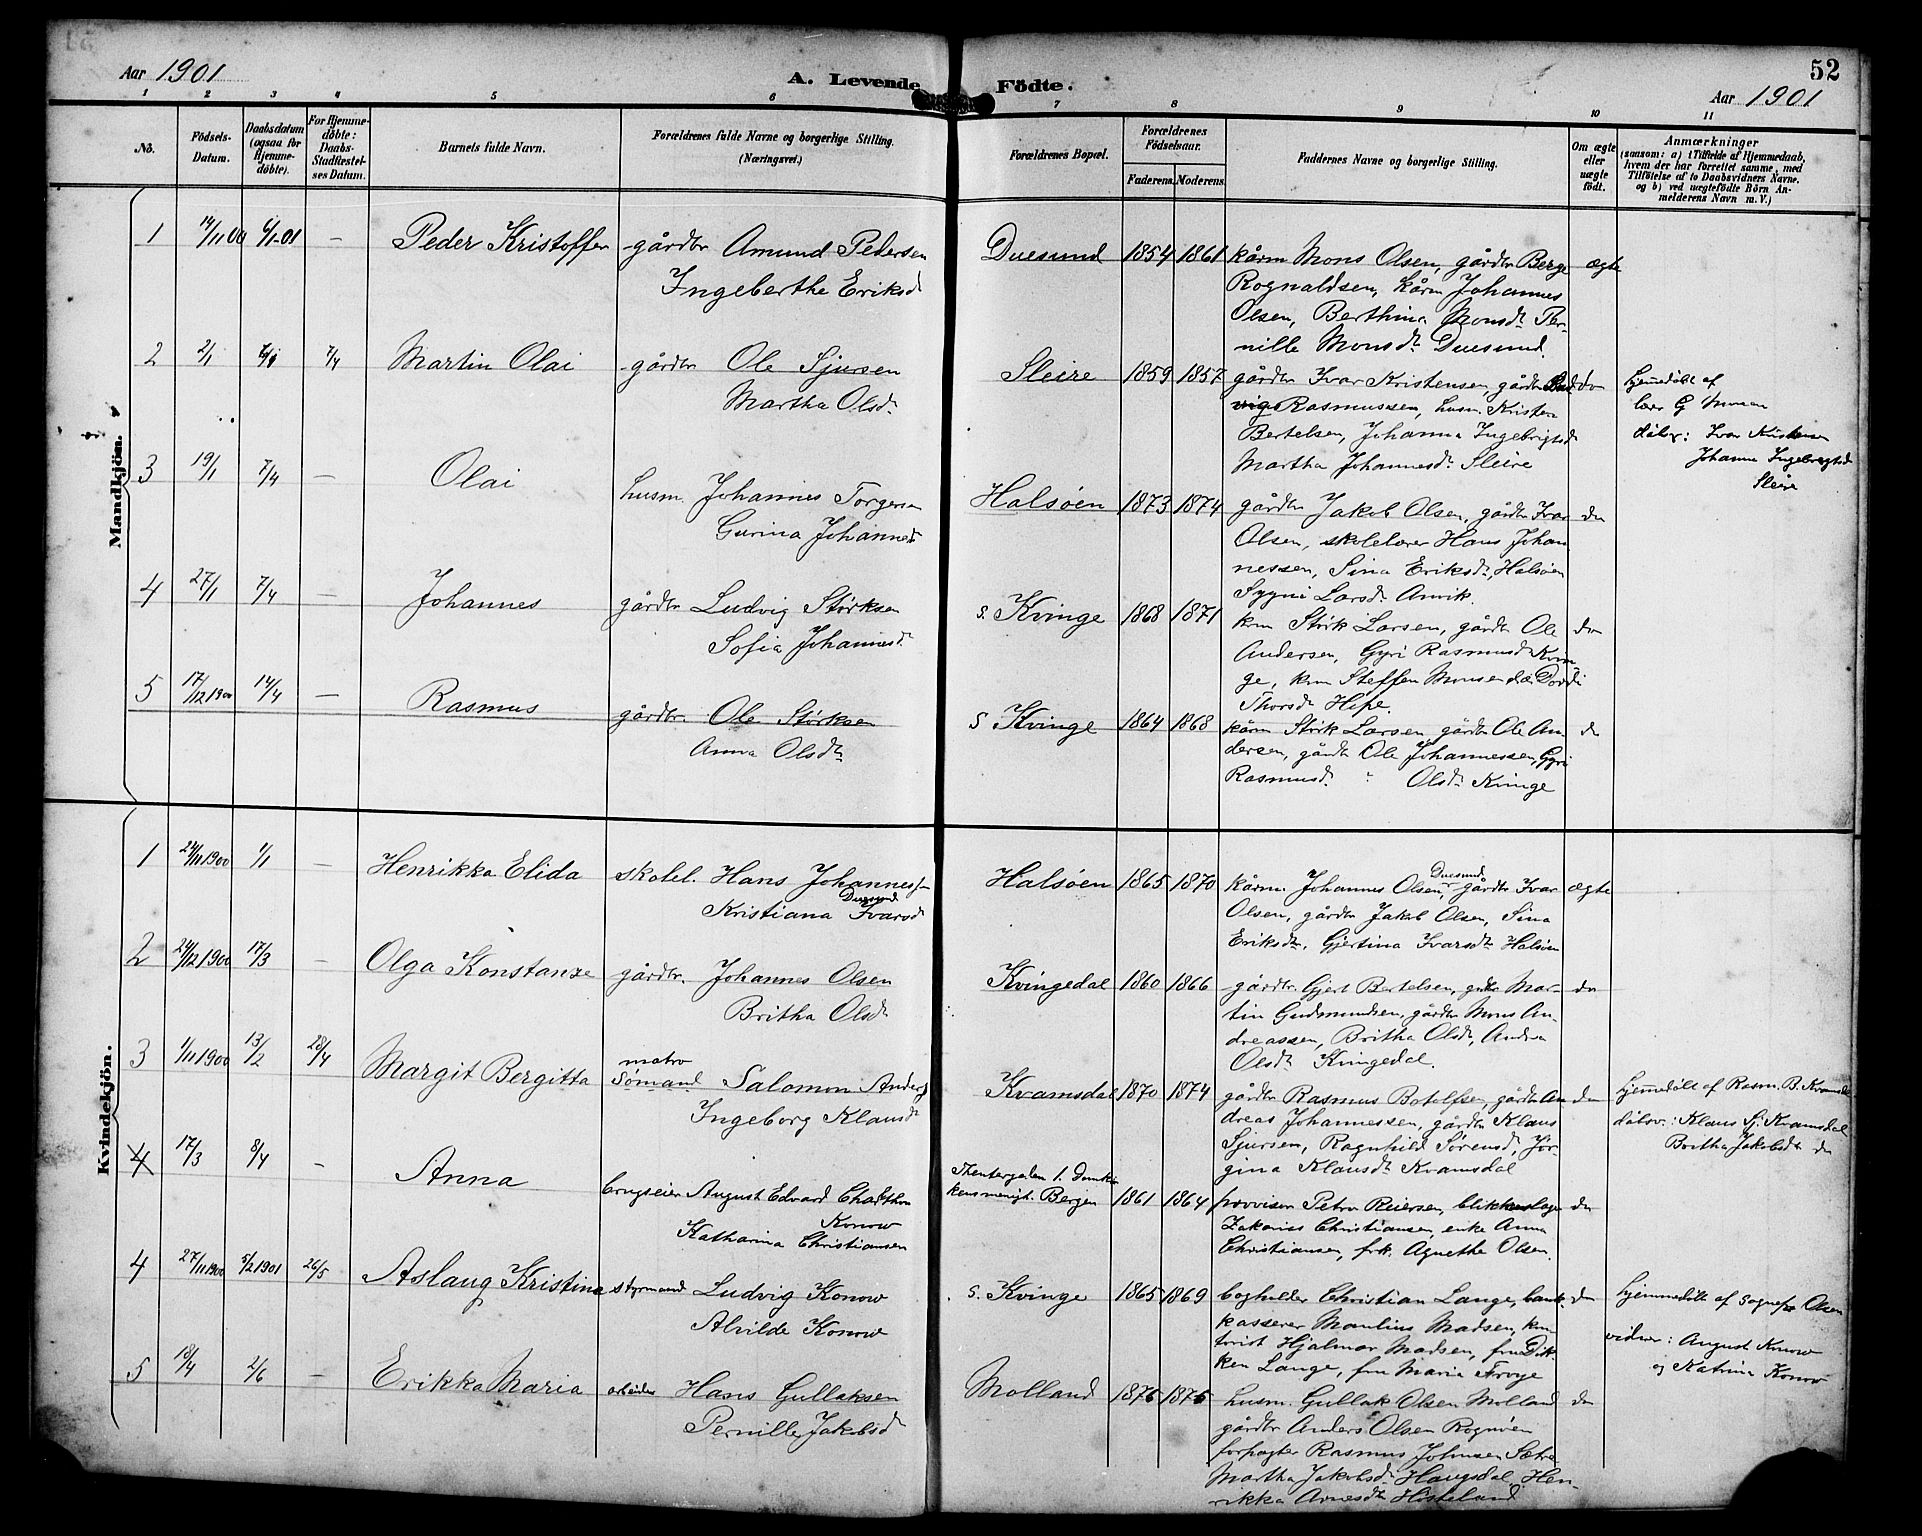 Aar 1901
A. Levende Födte.
52
Aar 1901
1 2 3 4 5 6 7 8 9 10 11
No.
Födsels-Datum.
Daabsdatum (ogsaa for Hjemme-döbte).
For Hjemme-döbte: Daabs-Stadfæstel-ses Datum.
Barnets fulde Navn.
Forældrenes fulde Navne og borgerlige Stilling.
(Næringsvei.)
Forældrenes Bopæl.
Forældrenes Födselsaar.
Faderens. Moderens.
Faddernes Navne og borgerlige Stilling.
Om ægte eller uægte födt.
Anmærkninger
(saasom: a) i Tilfælde af Hjemmedaab,
hvem der har forrettet samme, med
Tilföielse af to Daabsvidners Navne.
og b) ved uægtefödte Börn An-
melderens Navn m. V.)
Mandkjön.
1 14/11 00 6/1-01 — Peder Kristoffer gårdbr Amund Pedersen
Ingeberthe Eriksd
Duesund 1854 1861 kårm Mons Olsen, gårdbr Berge ægte
Rognaldsen, kårm Johannes
Olsen, Berthina Monsdt Per-
nille Monsdt Duesund.
2 2/1 6/1 7/4 Martin Olai gårdbr Ole Sjursen
Martha Olsdt
Sleire 1859 1857 gårdbr Ivar Kristensen, gårdbr do
Rasmussen, husm. Kristen
Bertelsen, Johanna Ingebrigtsd
Martha Johannesdt Sleire
Hjemmedøbt af
lærer G Monsen
dåbsv: Ivar Kristensen
Johanna Ingebregtsd
Sleire
3 19/1 7/4 — Olai husm. Johannes Torgersen
Gurina Johannesd
Halsøen 1873 1874 gårdbr Jakob Olsen, gårdbr Ivar do
Olsen, skolelærer Hans Johan
nessen, Sina Eriksdt, Halsøen
Sygni Larsdt Anvik.
4 27/1 7/4 — Johannes gårdbr Ludvig Størksen
Sofia Johannesd
S. Kvinge 1868 1871 krm Størk Larsen, gårdbr Ole do
Andersen, Gyri Rasmusdt Kvin
ge, krm Steffen Monsen
Thorsdt Hipe.
5 17/12 1900 14/4 — Rasmus gårdbr. Ole Størksen
Anna Olsdt
S Kvinge 1864 1868 kårm Størk Larsen gårdbr Ole An do
dersen, gårdbr Ole Johannessen, Gyri
Rasmusdt " Olsdt Kvinge
Kvindekjön.
1 24/11 1900 1/1 — Henrikka Elida skolel. Hans Johanness
Duesund
Kristiana Ivarsd
Halsøen 1865 1870 kårm. Johannes Olsen, Duesund gårdbr Ivar ægte
Olsen, gårdbr Jakob Olsen, Sina
Eriksdt, Gjertina Ivarsdt Halsøen
2 24/12 1900 17/3 — Olga Konstanse gårdbr. Johannes Olsen
Britha Olsd
Kvingedal 1860 1866 gårdbr. Gjert Bertelsen, gårdbr Mar- do
tin Gudmundsen, gårdbr Mons An-
dreassen, Britha Olsdt, Andrea
Olsdt Kvingedal.
3 1/11 1900 13/2 28/4 Margit Bergitta matro
Sømand Salomon Anders
Ingeborg Klausdt
Kvamsdal 1870 1874 gårdbr Rasmus Botolfsen, gårdbr An do
dreas Johannessen, gårdbr Klaus
Sjursen, Ragnhild Sørensdt, Jør-
gina Klausdt Kvamsdal
Hjemmedøbt af Rasm. B. Kvamsdal
dåbsv.: Klaus Sj. Kvamsdal
Britha Jakobsdt do
4 17/3 8/4 — Anna brugseier August Edvard
Konow
Katharina Christiansen
Bergen 1861 1864 provisor Petra Reiersen, blikkenslager do
Zakarias Christiansen, enke Anna
Christiansen, frk. Agnethe Olsen.
4 27/11 1900 5/2 1901 26/5 Aslaug Kristina styrmand Ludvig Konow
Alvilde Konow
S. Kvinge 1865 1869 bogholder Christian Lange, bank- do
kasserer Maulius Madsen, kon
torist Hjalmar Madsen, fru Dik-
ken Lange, fru Maria Troye
Hjemmedøbt af Sognepr Olsen
vidner: August Konow
og Katrina Konow
5 18/4 2/6 — Erikka Maria arbeider Hans Gullaksen
Pernille Jakobsd
Molland 1875 1875 husm. Gullak Olsen Molland do
gårdbr Anders Olsen Rognøen
forpagter Rasmus Johnsen Sætre
Martha Jakobsdt Haugsdal, Hen-
rikka Arnesdt Hisdeland